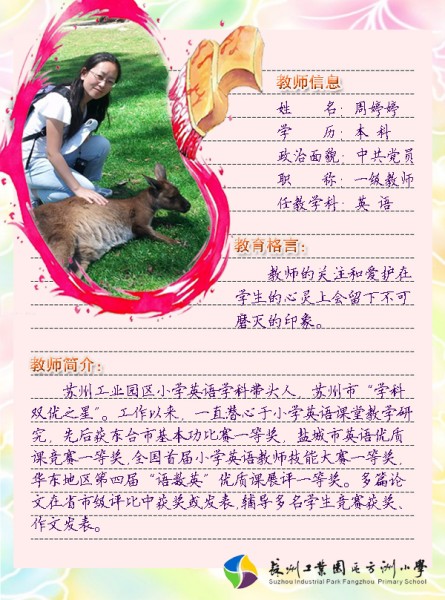 教师信息
姓　　名：周婷婷
学　　历：本 科
政治面貌：中共党员
职　　称：一级教师
任教学科：英 语
教育格言：
教师的关注和爱护在
学生的心灵上会留下不可
磨灭的印象。
教师简介：
苏州工业园区小学英语学科带头人，苏州市“学科
双优之星”。工作以来，一直潜心于小学英语课堂教学研
究，先后获东台市基本功比赛一等奖，盐城市英语优质
课竞赛一等奖，全国首届小学英语教师技能大赛一等奖，
华东地区第四届“语数英”优质课展评一等奖。多篇论
文在省市级评比中获奖或发表，辅导多名学生竞赛获奖、
作文发表。
苏州工业园区方洲小学
Suzhou Industrial Park Fangzhou Primary School